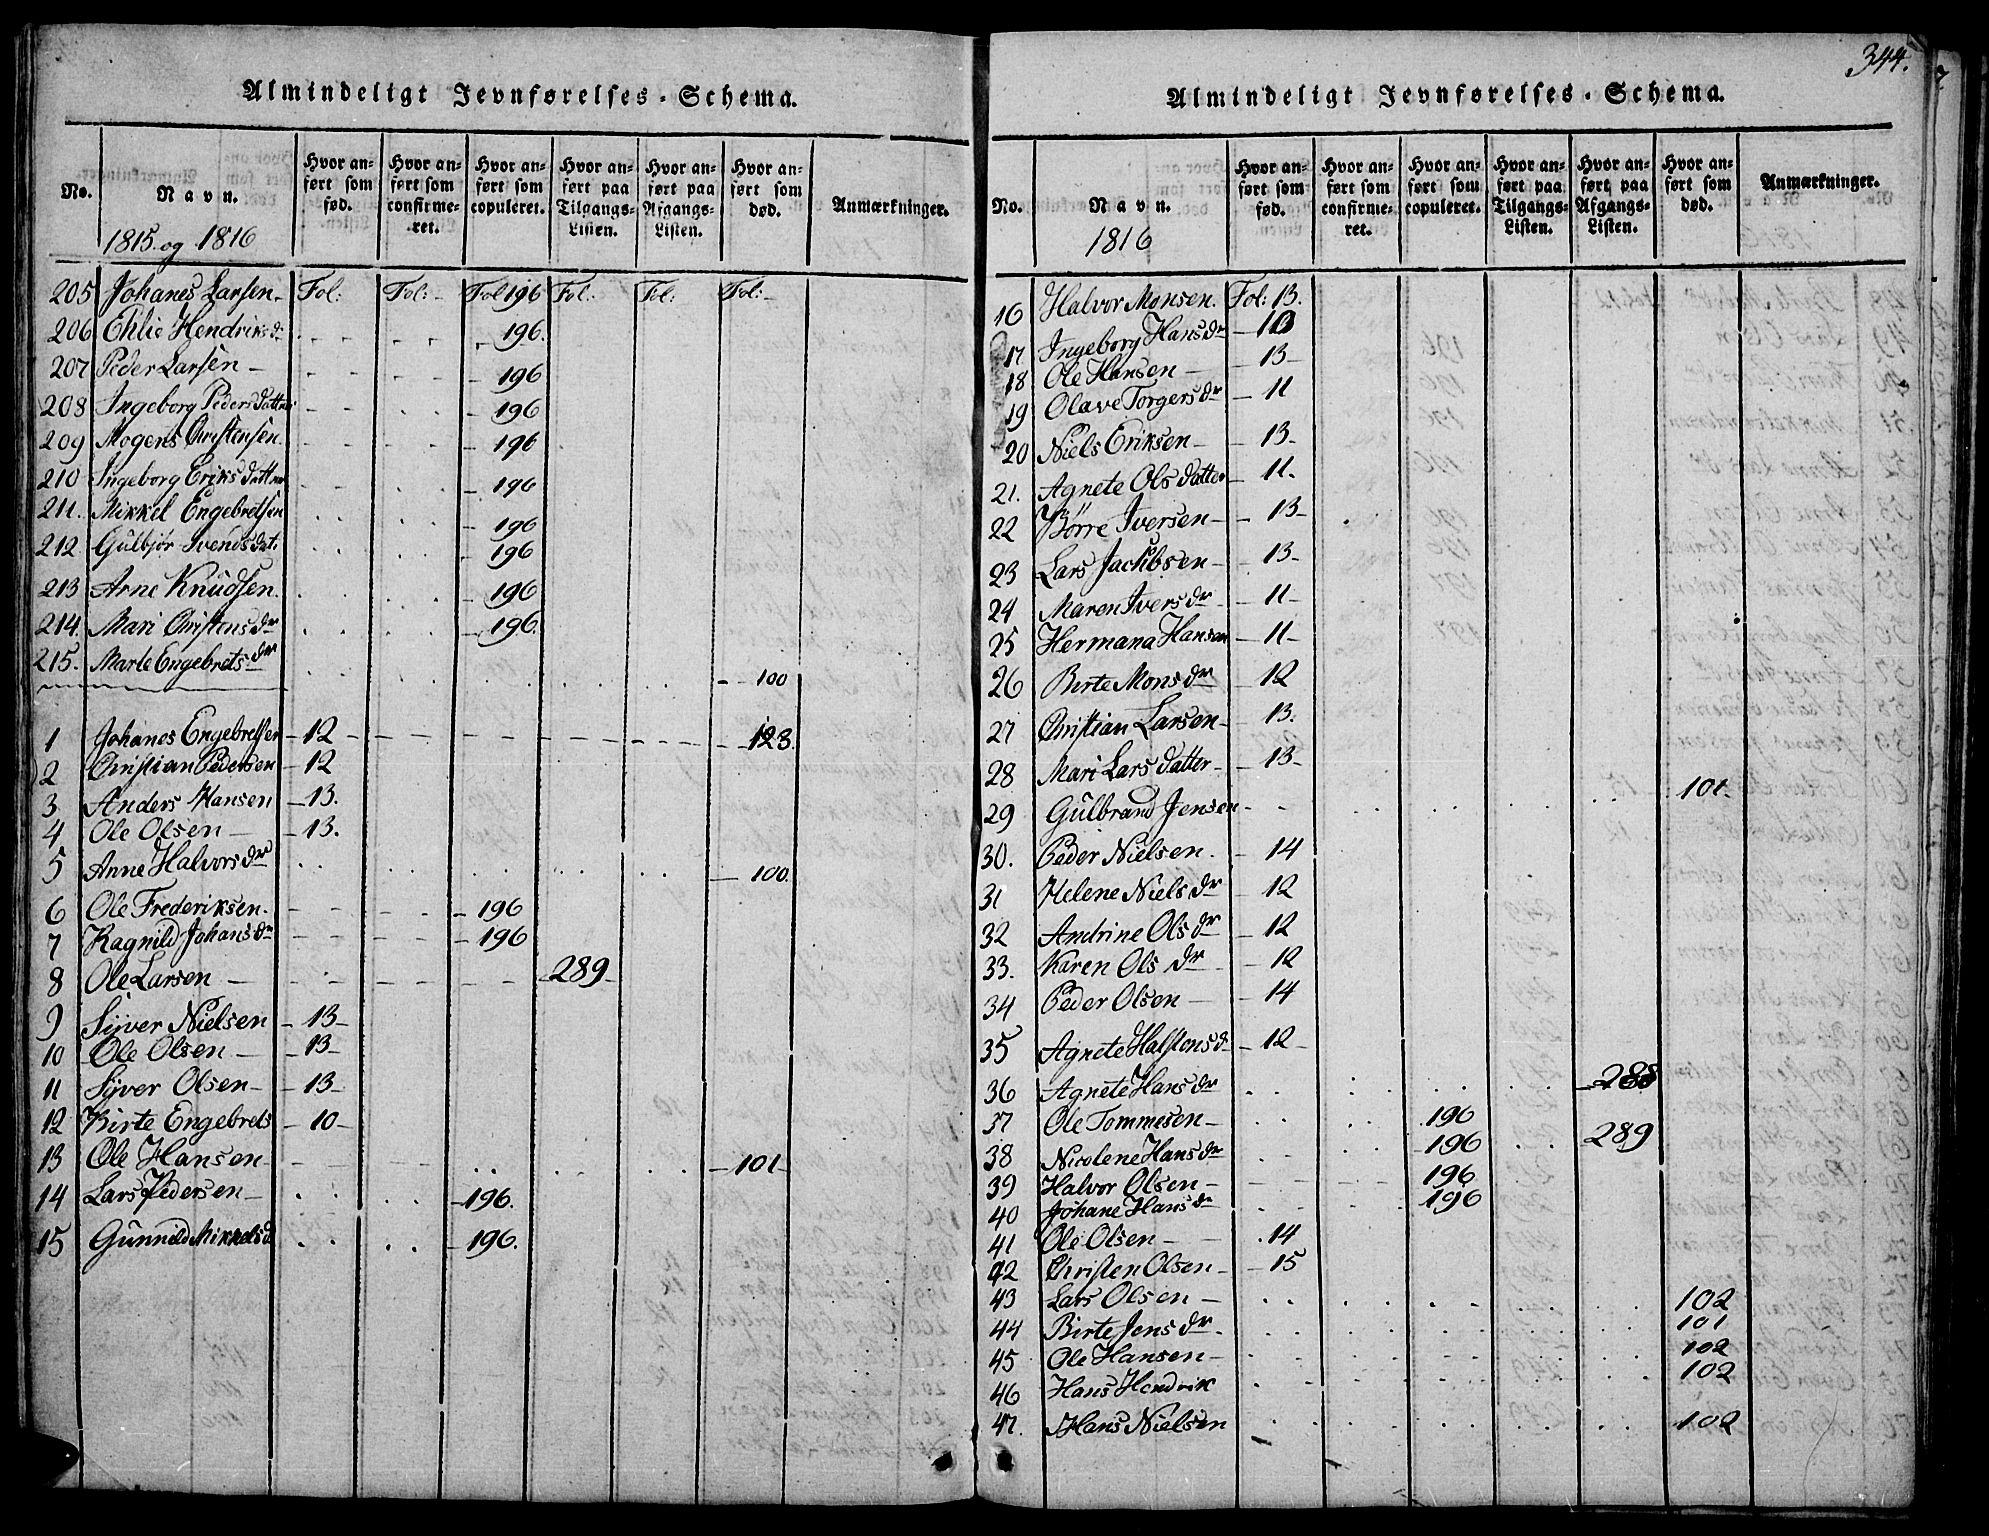 344.
Almindeligt Jevnførelses-Schema.
No. Navn. Hvor anført som fød. Hvor anført som confirmeret. Hvor anført som copuleret. Hvor anført paa Tilgangs-Listen. Hvor anført paa Afgangs-Listen. Hvor anført som død. Anmærkninger.
1815. og 1816
205 Johanes Larsen Fol: Fol: Fol 196 Fol. Fol: Fol:
206 Ehlie Hendriks dr 196.
207 Peder Larsen 196
208 Ingeborg Peders Datter 196
209 Mogens Christensen. 196
210 Ingeborg Eriks Datter 196
211. Mikkel Engebretsen 196
212 Gulbjør Svends dat. 196
213 Arne Knudsen. 196
214. Mari Christens dr 196.
215. Marte Engebrets dr 100
1 Johanes Engebretsen 12 123.
2 Christian Pedersen 12
3 Anders Hansen 13.
4 Ole Olsen 13.
5 Anne Halvors dr 100.
6 Ole Frederiksen. 196
7 Ragnild Johans dr 196
8 Ole Larsen 289
9 Syver Nielsen 13
10 Ole Olsen 13
11 Syver Olsen 13
12 Birte Engebrets 10
13 Ole Hansen 101
14 Lars Pedersen 196.
15 Gunnild Mikkels d 196.
Almindeligt Jevnførelses-Schema.
No. Navn. Hvor anført som fød. Hvor anført som confirmeret. Hvor anført som copuleret. Hvor anført paa Tilgangs-Listen. Hvor anført paa Afgangs-Listen. Hvor anført som død. Anmærkninger.
1816
16 Halvor Monsen. Fol: 13.
17 Ingeborg Hans dr 10
18 Ole Hansen 13
19 Olave Torgers dr 11
20 Niels Eriksen 13
21. Agnete Ols Datter 11.
22 Börre Iversen 13
23 Lars Jachbsen 13
24 Maren Ivers dr 11
25 Hermana Hansen 11
26 Birte Mons dr 12
27 Christian Larsen 13.
28 Mari Lars datter 13
29 Gulbrand Jensen 101.
30. Peder Nielsen. 14
31 Helene Niels dr 12
32 Andrine Ols dr 12
33. Karen Ols dr 12
34 Peder Olsen 14
35 Agnete Halstens d 12
36 Agnete Hans dr 288
37 Ole Tommesen 196
38 Nicolene Hans dr 196 289
39 Halvor Olsen 196
40 Johane Hans dr 196
41 Ole Olsen 14
42 Christen Olsen 15
43 Lars Olsen 102
44 Birte Jens dr. 101
45 Ole Hansen 102
46 Hans Hendrik 102
47. Hans Nielsen 102